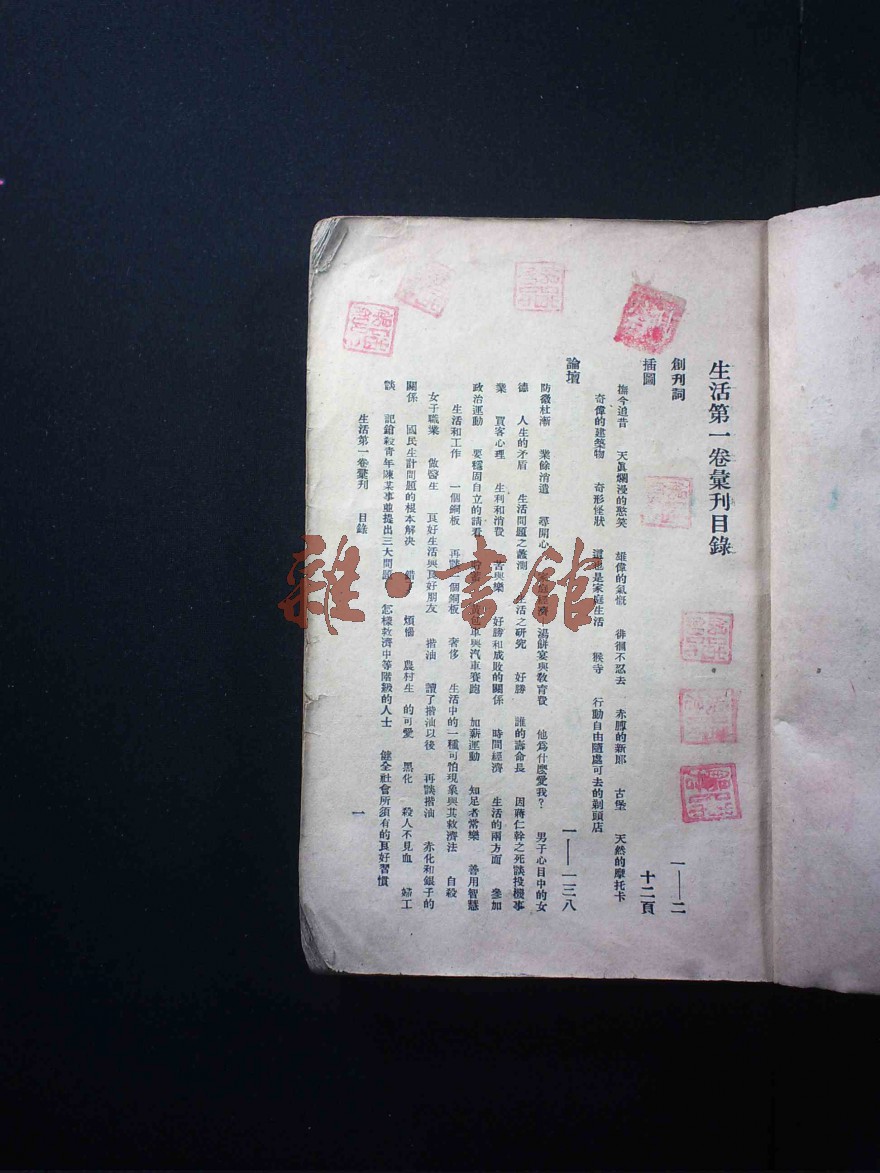 生活第一卷彙刊目錄
創刊詞 一——二
插圖 十二頁
撫今追昔 天真爛漫的憨笑 雄偉的氣慨 徘徊不忍去 赤膊的新郎 古堡 天然的摩托卡
奇偉的建築物 奇形怪狀 這也是家庭生活 猴寺 行動自由隨處可去的剃頭店
論壇 一——一三八
防微杜漸 業餘消遣 尋開心 家庭經濟 湯餅宴與教育費 他為什麼愛我? 男子心目中的女
德 人生的矛盾 生活問題之蠡測 生活之研究 好勝 誰的壽命長 因蔣仁幹之死談投機事
業 買客心理 生利和消費 苦與樂 好勝和成敗的關係 時間經濟 生活的兩方面 參加
政治運動 要穩固自立的請看 包車與汽車賽跑 加薪運動 知足者常樂 善用智慧
生活和工作 一個銅板 再談一個銅板 奢侈 生活中的一種可怕現象與其救濟法 自殺
女子職業 做醫生 良好生活與良好朋友 揩油 讀了揩油以後 再談揩油 赤化和銀子的
關係 國民生計問題的根本解決 錯了 煩惱 農村生 的可愛 黑化 殺人不見血 婦工
談 記鎗殺青年陳某事並提出三大問題 怎樣救濟中等階級的人士 健全社會所須有的良好習慣
生活第一卷彙刊 目錄 一
雜·書館